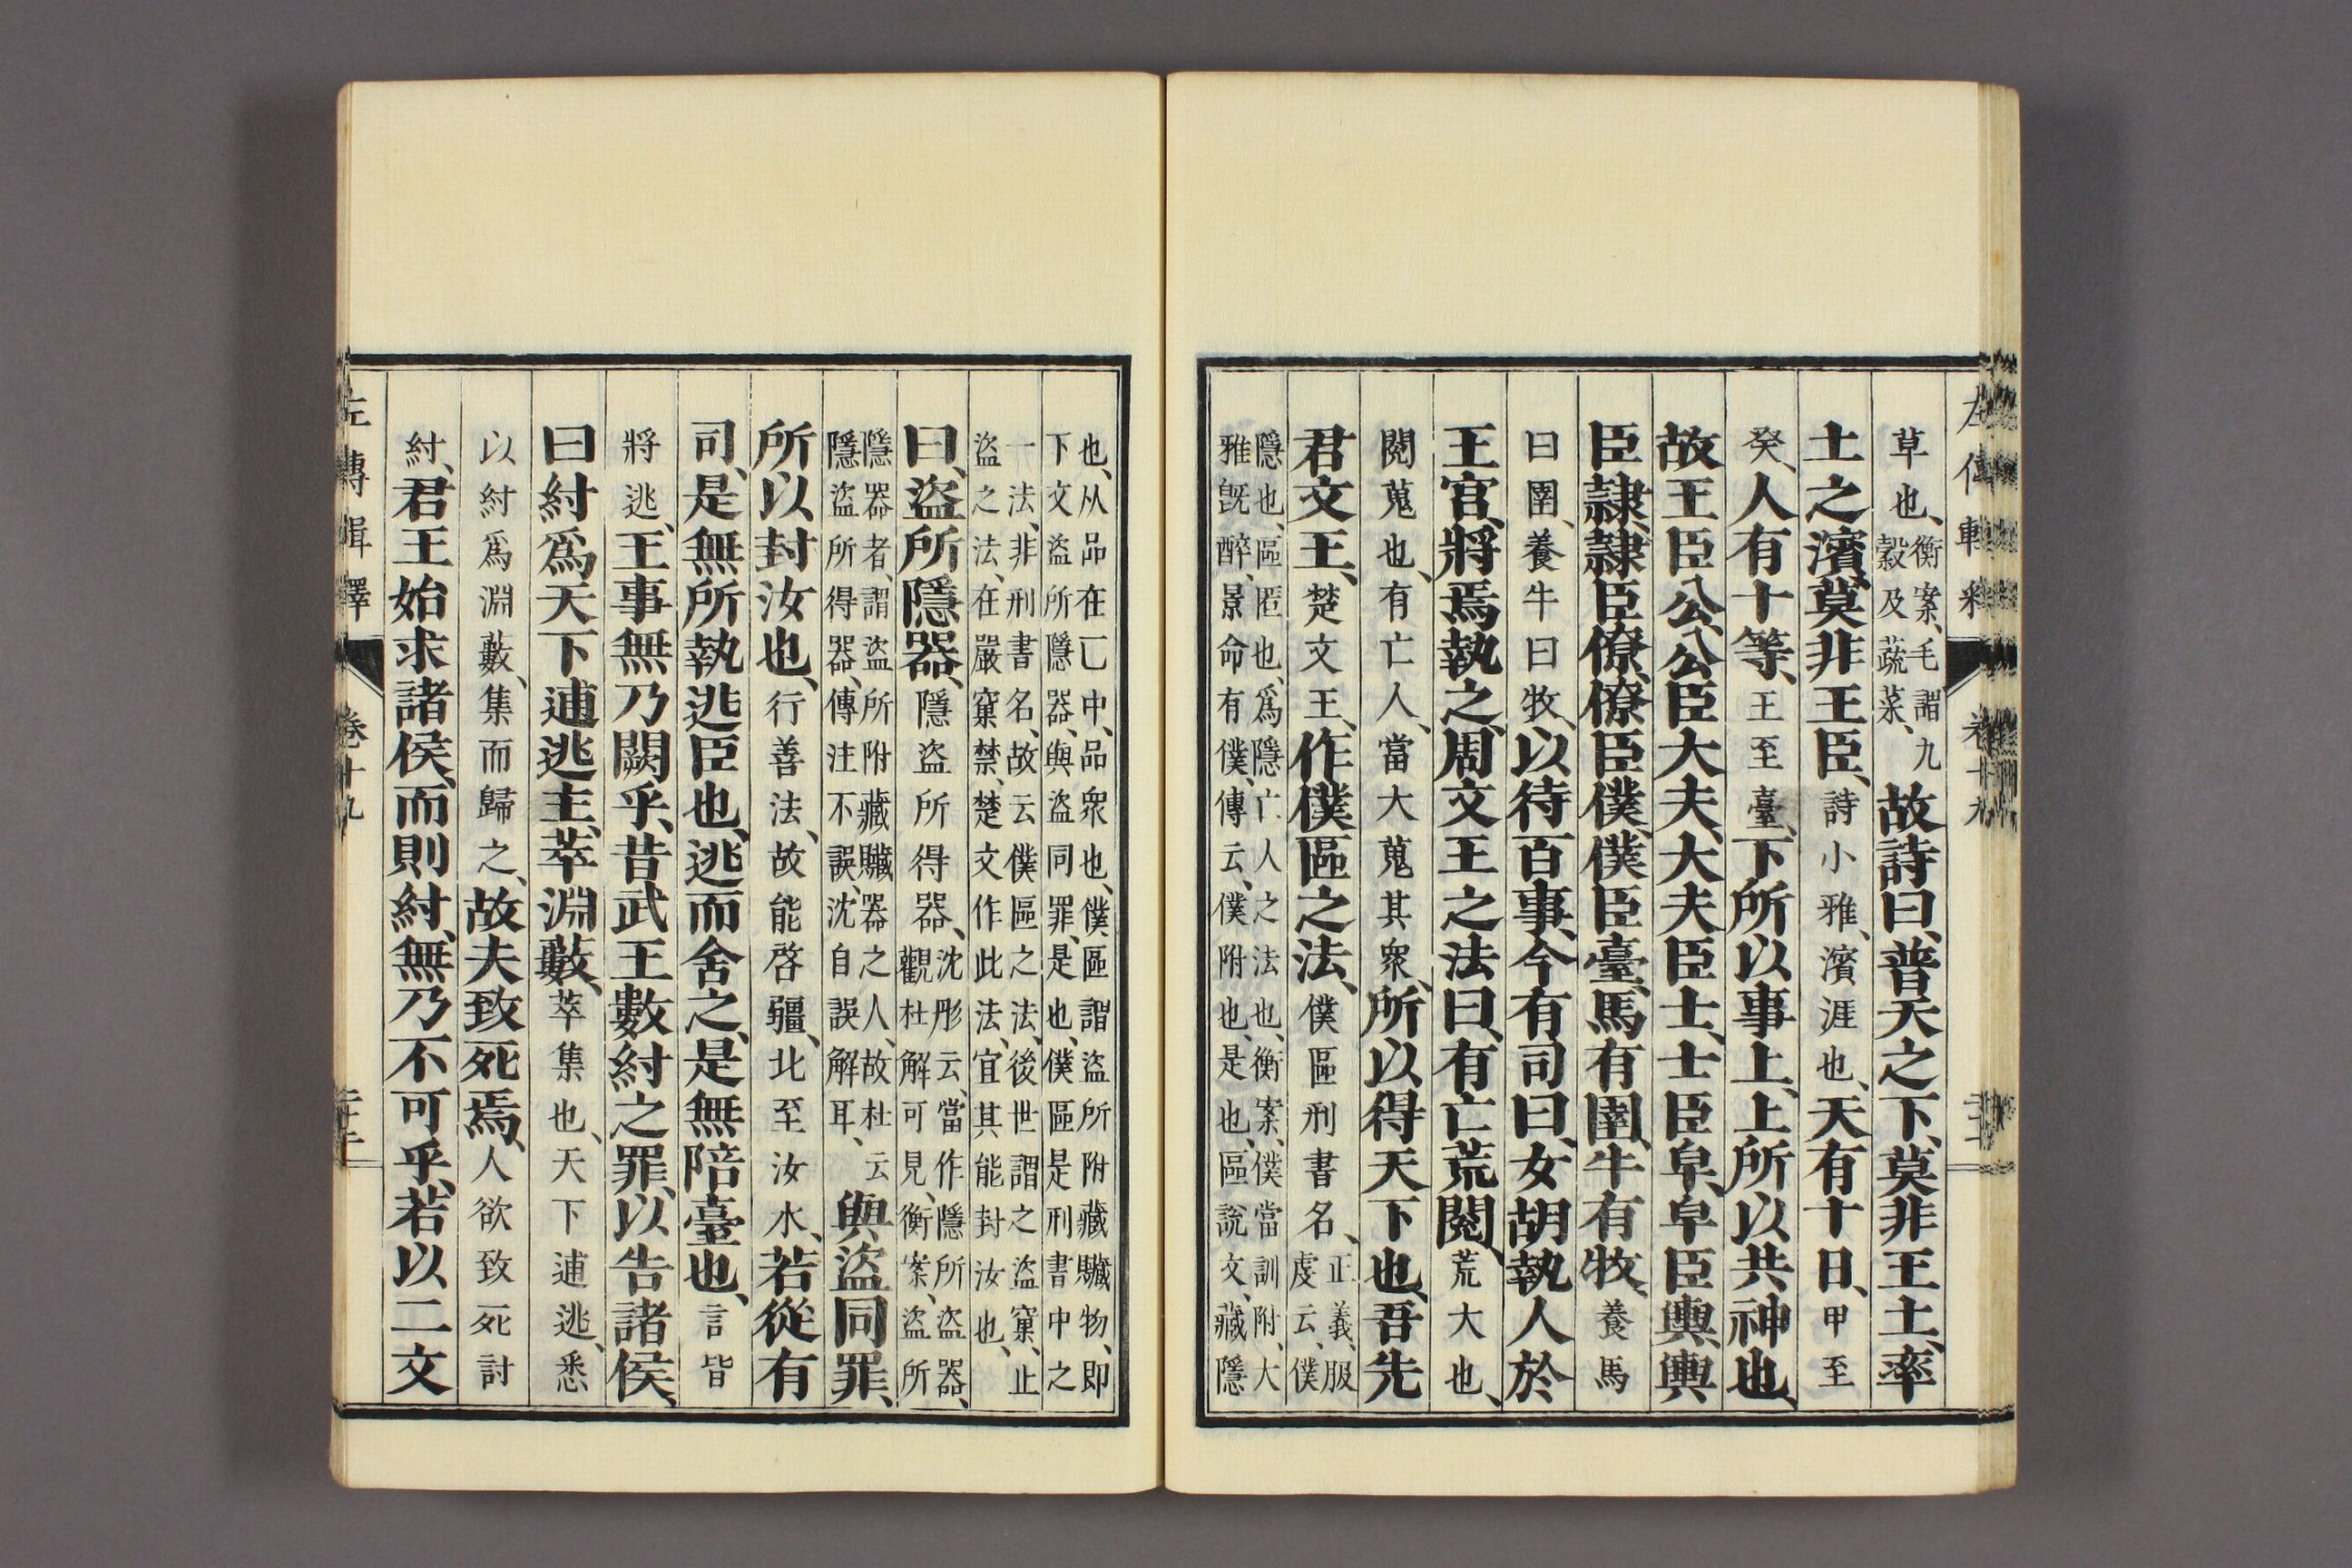 左傳輯釋 卷十九
草也、衡案、毛謂九
穀及蔬菜、故詩曰、普天之下、莫非王土、率
土之濱、莫非王臣、詩小雅、濱涯也、天有十日、甲至
癸、人有十等、王至臺、下所以事上、上所以共神也、
故王臣公、公臣大夫、大夫臣士、士臣皁、皁臣輿、輿
臣隸、隸臣僚、僚臣僕、僕臣臺、馬有圉、牛有牧、養馬
曰圉、養牛曰牧、以待百事、今有司曰、女胡執人於
王宮、將焉執之、周文王之法曰、有亡荒閱、荒大也、
閱蒐也、有亡人、當大蒐其衆、所以得天下也、吾先
君文王、楚文王、作僕區之法、僕區刑書名、正義、服
虔云、僕
隱也、區匿也、爲隱亡人之法也、衡案、僕當訓附、大
雅旣醉、景命有僕、傳云、僕附也、是也、區說文、藏隱
也、从品在匸中、品衆也、僕區謂盜所附藏贓物、即
下文盜所隱器、與盜同罪、是也、僕區是刑書中之
一法、非刑書名、故云僕區之法、後世謂之盜窠、止
盜之法、在嚴窠禁、楚文作此法、宜其能封汝也、
曰、盜所隱器、隱盜所得器、沈彤云、當作隱所盜器、
觀杜解可見、衡案、盜所
隱器者、謂盜所附藏贓器之人、故杜云
隱盜所得器、傳注不誤、沈自誤解耳、與盜同罪、
所以封汝也、行善法、故能啓疆、北至汝水、若從有
司、是無所執逃臣也、逃而舍之、是無陪臺也、言皆
將逃、王事無乃闕乎、昔武王數紂之罪、以告諸侯、
曰紂爲天下逋逃主、萃淵藪、萃集也、天下逋逃、悉
以紂爲淵藪、集而歸之、故夫致死焉、人欲致死討
紂、君王始求諸侯、而則紂、無乃不可乎、若以二文
左傳輯釋 卷十九